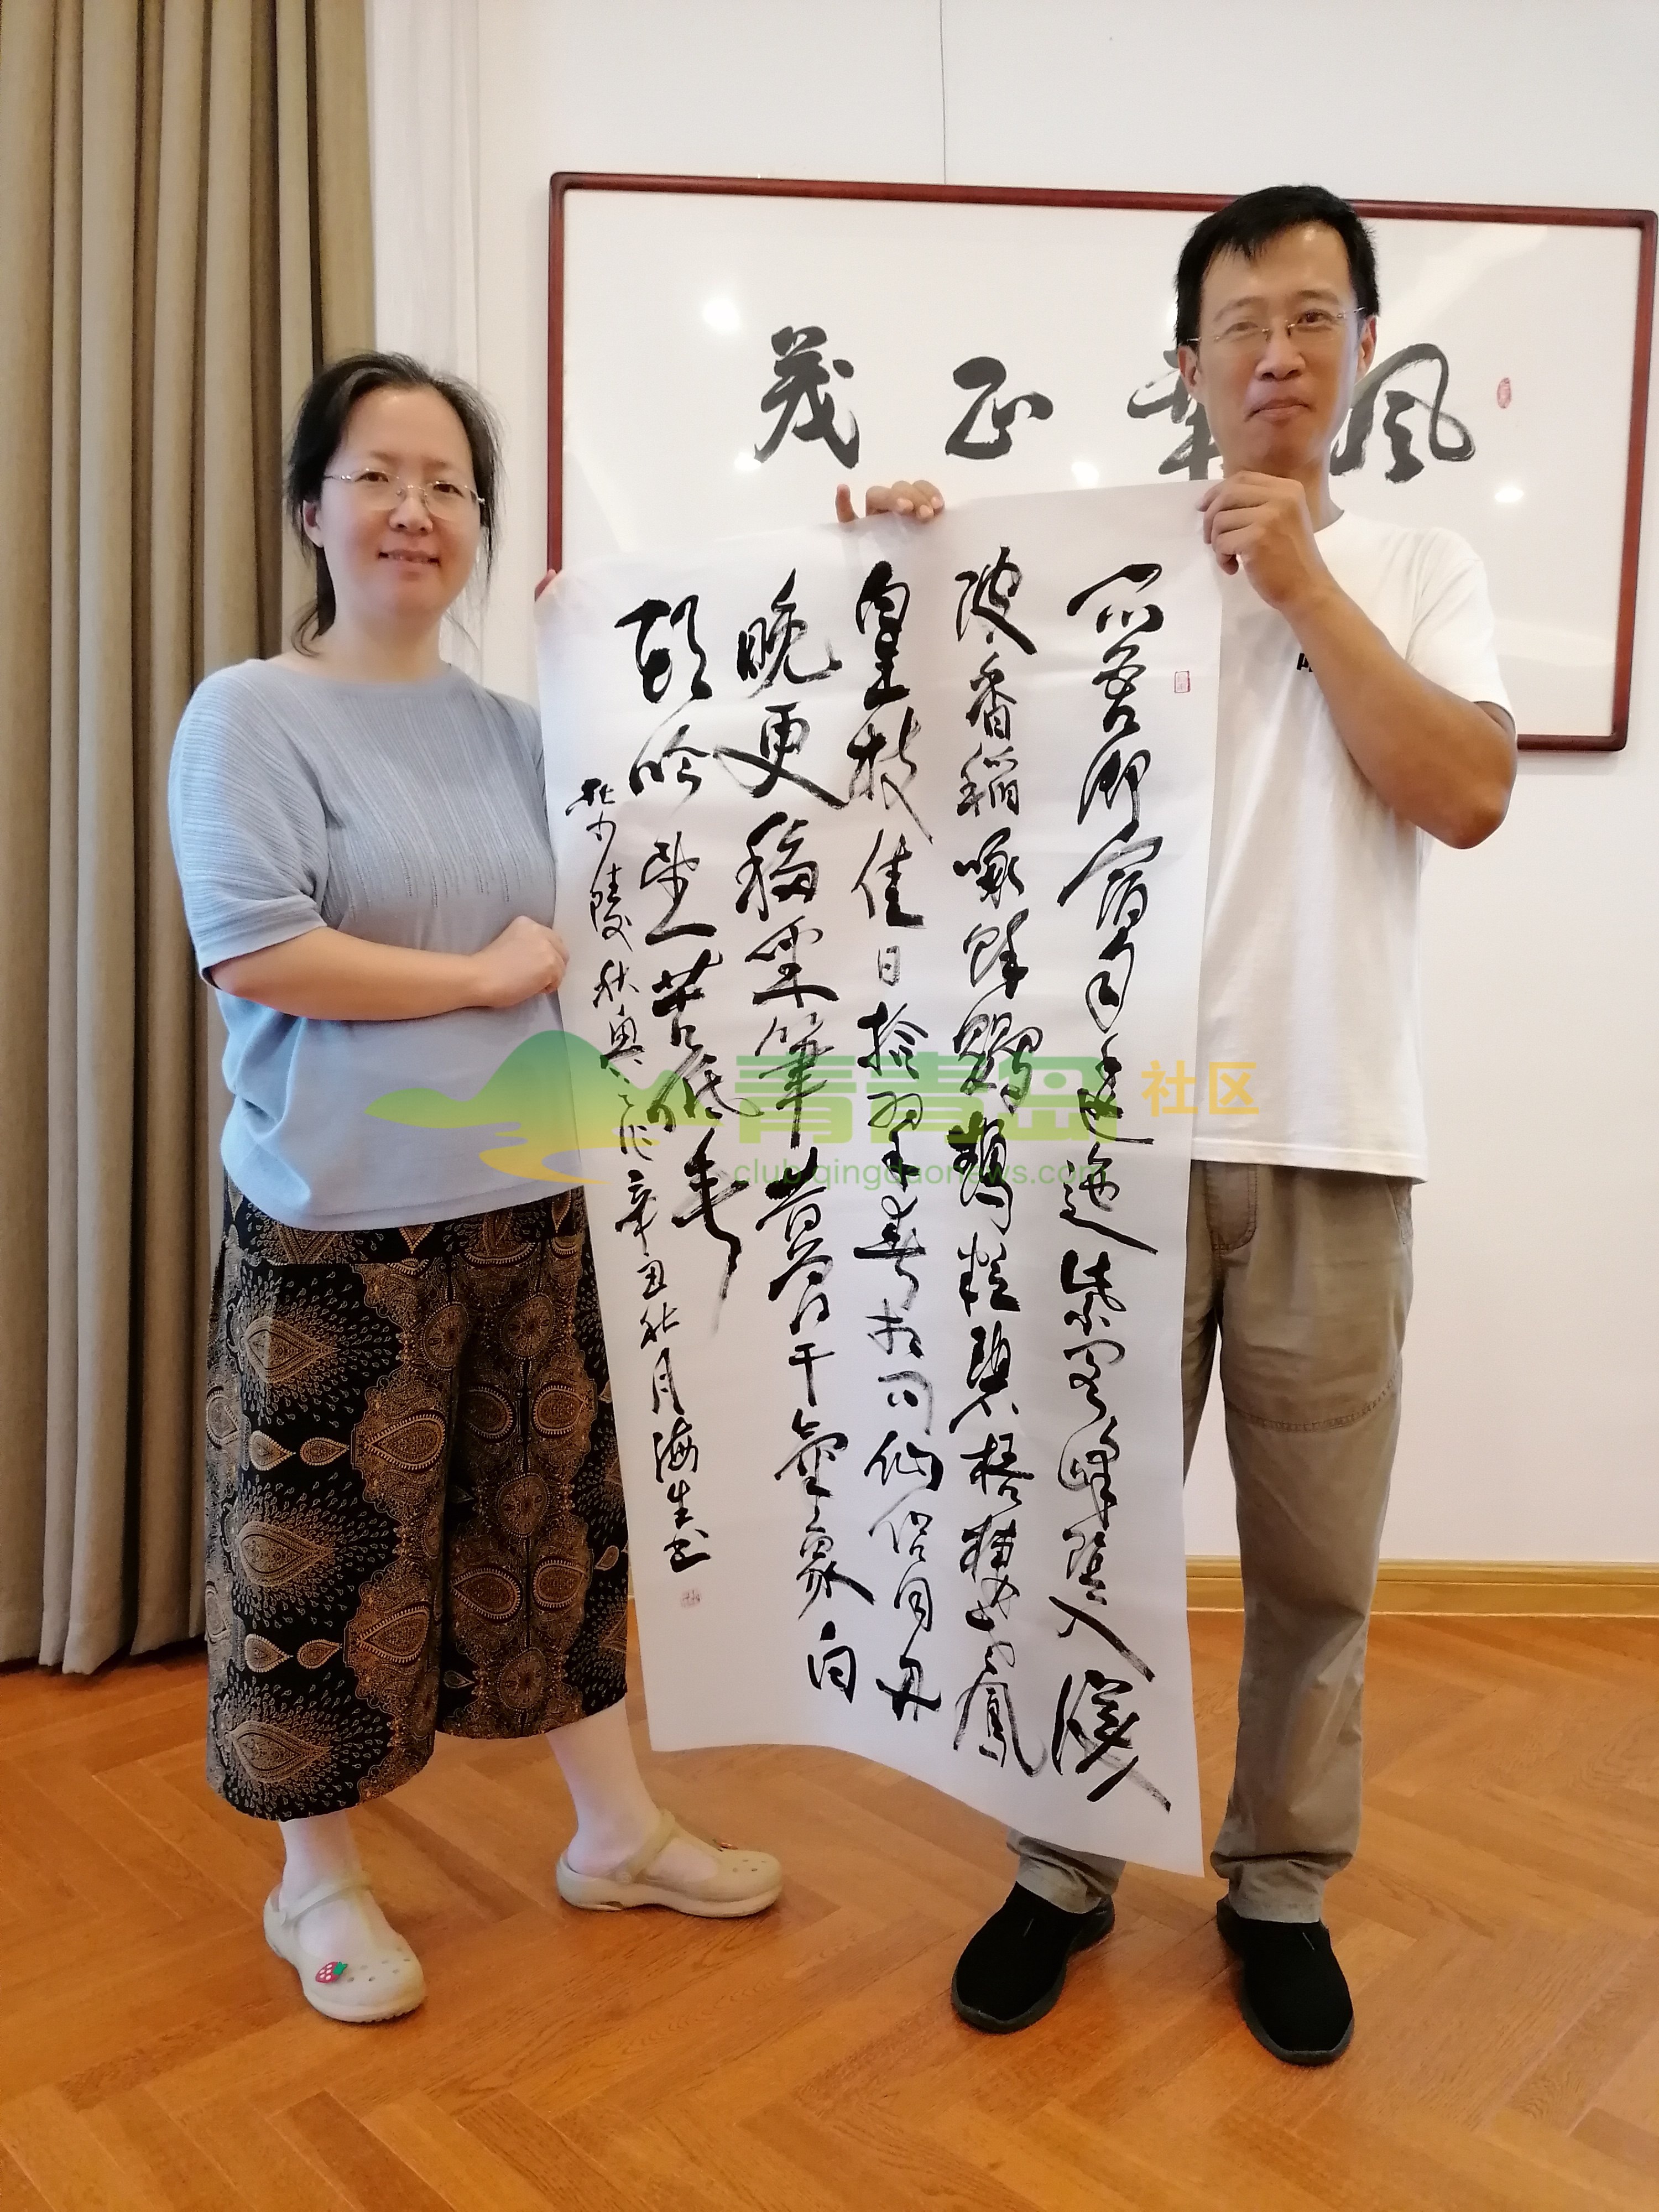 風華正茂
昆吾御宿自逶迤紫閣峰陰入渼
陂香稻啄餘鸚鵡粒碧梧棲老鳳
皇枝佳日拾翠春相問仙侶同舟
晚更移采筆昔曾干氣象白
頭吟望苦低垂
杜少陵秋興 辛丑秋月海生書
青青岛 社区
club.qingdaonews.com